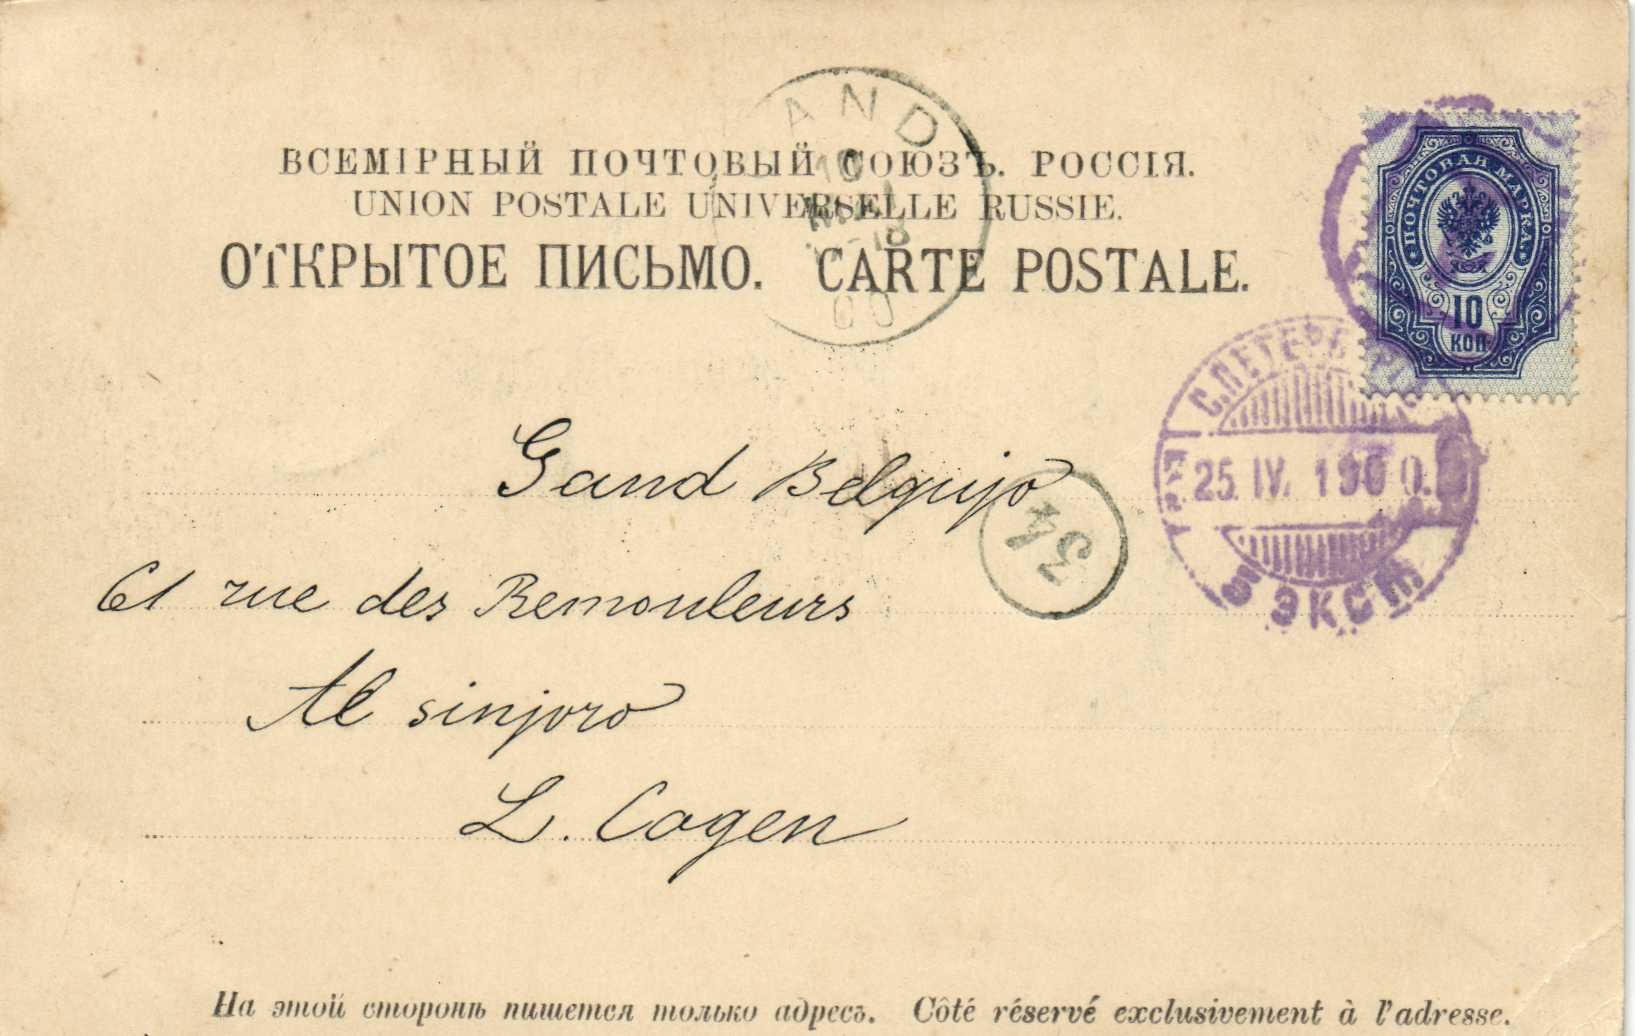 ВСЕМІРНЫЙ ПОЧТОВЫЙ СОЮЗЪ. РОССІЯ.
UNION POSTALE UNIVERSELLE RUSSIE.
ОТКРЫТОЕ ПИСЬМО. CARTE POSTALE.
ПОЧТОВАЯ МАРКА
10
КОП
AND
10
00
С.ПЕТЕРБ
25. IV. 1900.
ЭКСП
34
Gand Belgujo
61 rue des Remouleurs
Al sinjoro
L. Cogen
На этой сторонѣ пишется только адресъ. Côté réservé exclusivement à l'adresse.